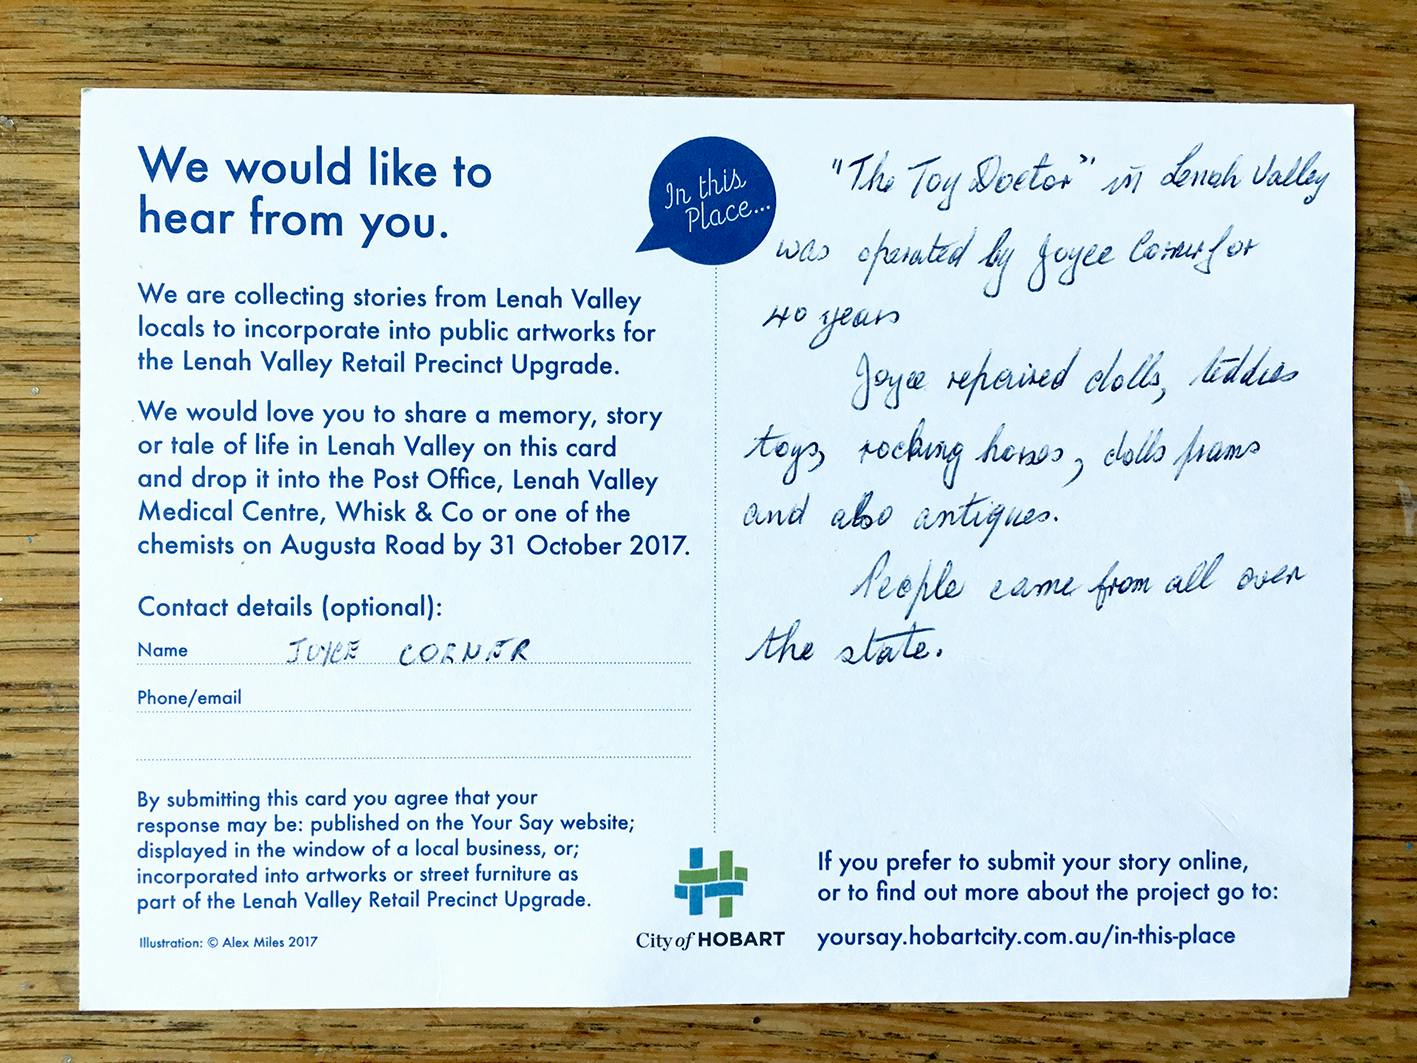 We would like to
hear from you.
We are collecting stories from Lenah Valley
locals to incorporate into public artworks for
the Lenah Valley Retail Precinct Upgrade.
We would love you to share a memory, story
or tale of life in Lenah Valley on this card
and drop it into the Post Office, Lenah Valley
Medical Centre, Whisk & Co or one of the
chemists on Augusta Road by 31 October 2017.
Contact details (optional):
Name JOYCE CORNER
Phone/email
By submitting this card you agree that your
response may be: published on the Your Say website;
displayed in the window of a local business, or;
incorporated into artworks or street furniture as
part of the Lenah Valley Retail Precinct Upgrade.
Illustration: © Alex Miles 2017
In this
Place...
"The Toy Doctor" in Lenah Valley
was operated by Joyce Corner for
40 years
Joyce repaired dolls, teddies
toys, rocking horses, dolls prams
and also antiques.
People came from all over
the state.
City of HOBART
If you prefer to submit your story online,
or to find out more about the project go to:
yoursay.hobartcity.com.au/in-this-place